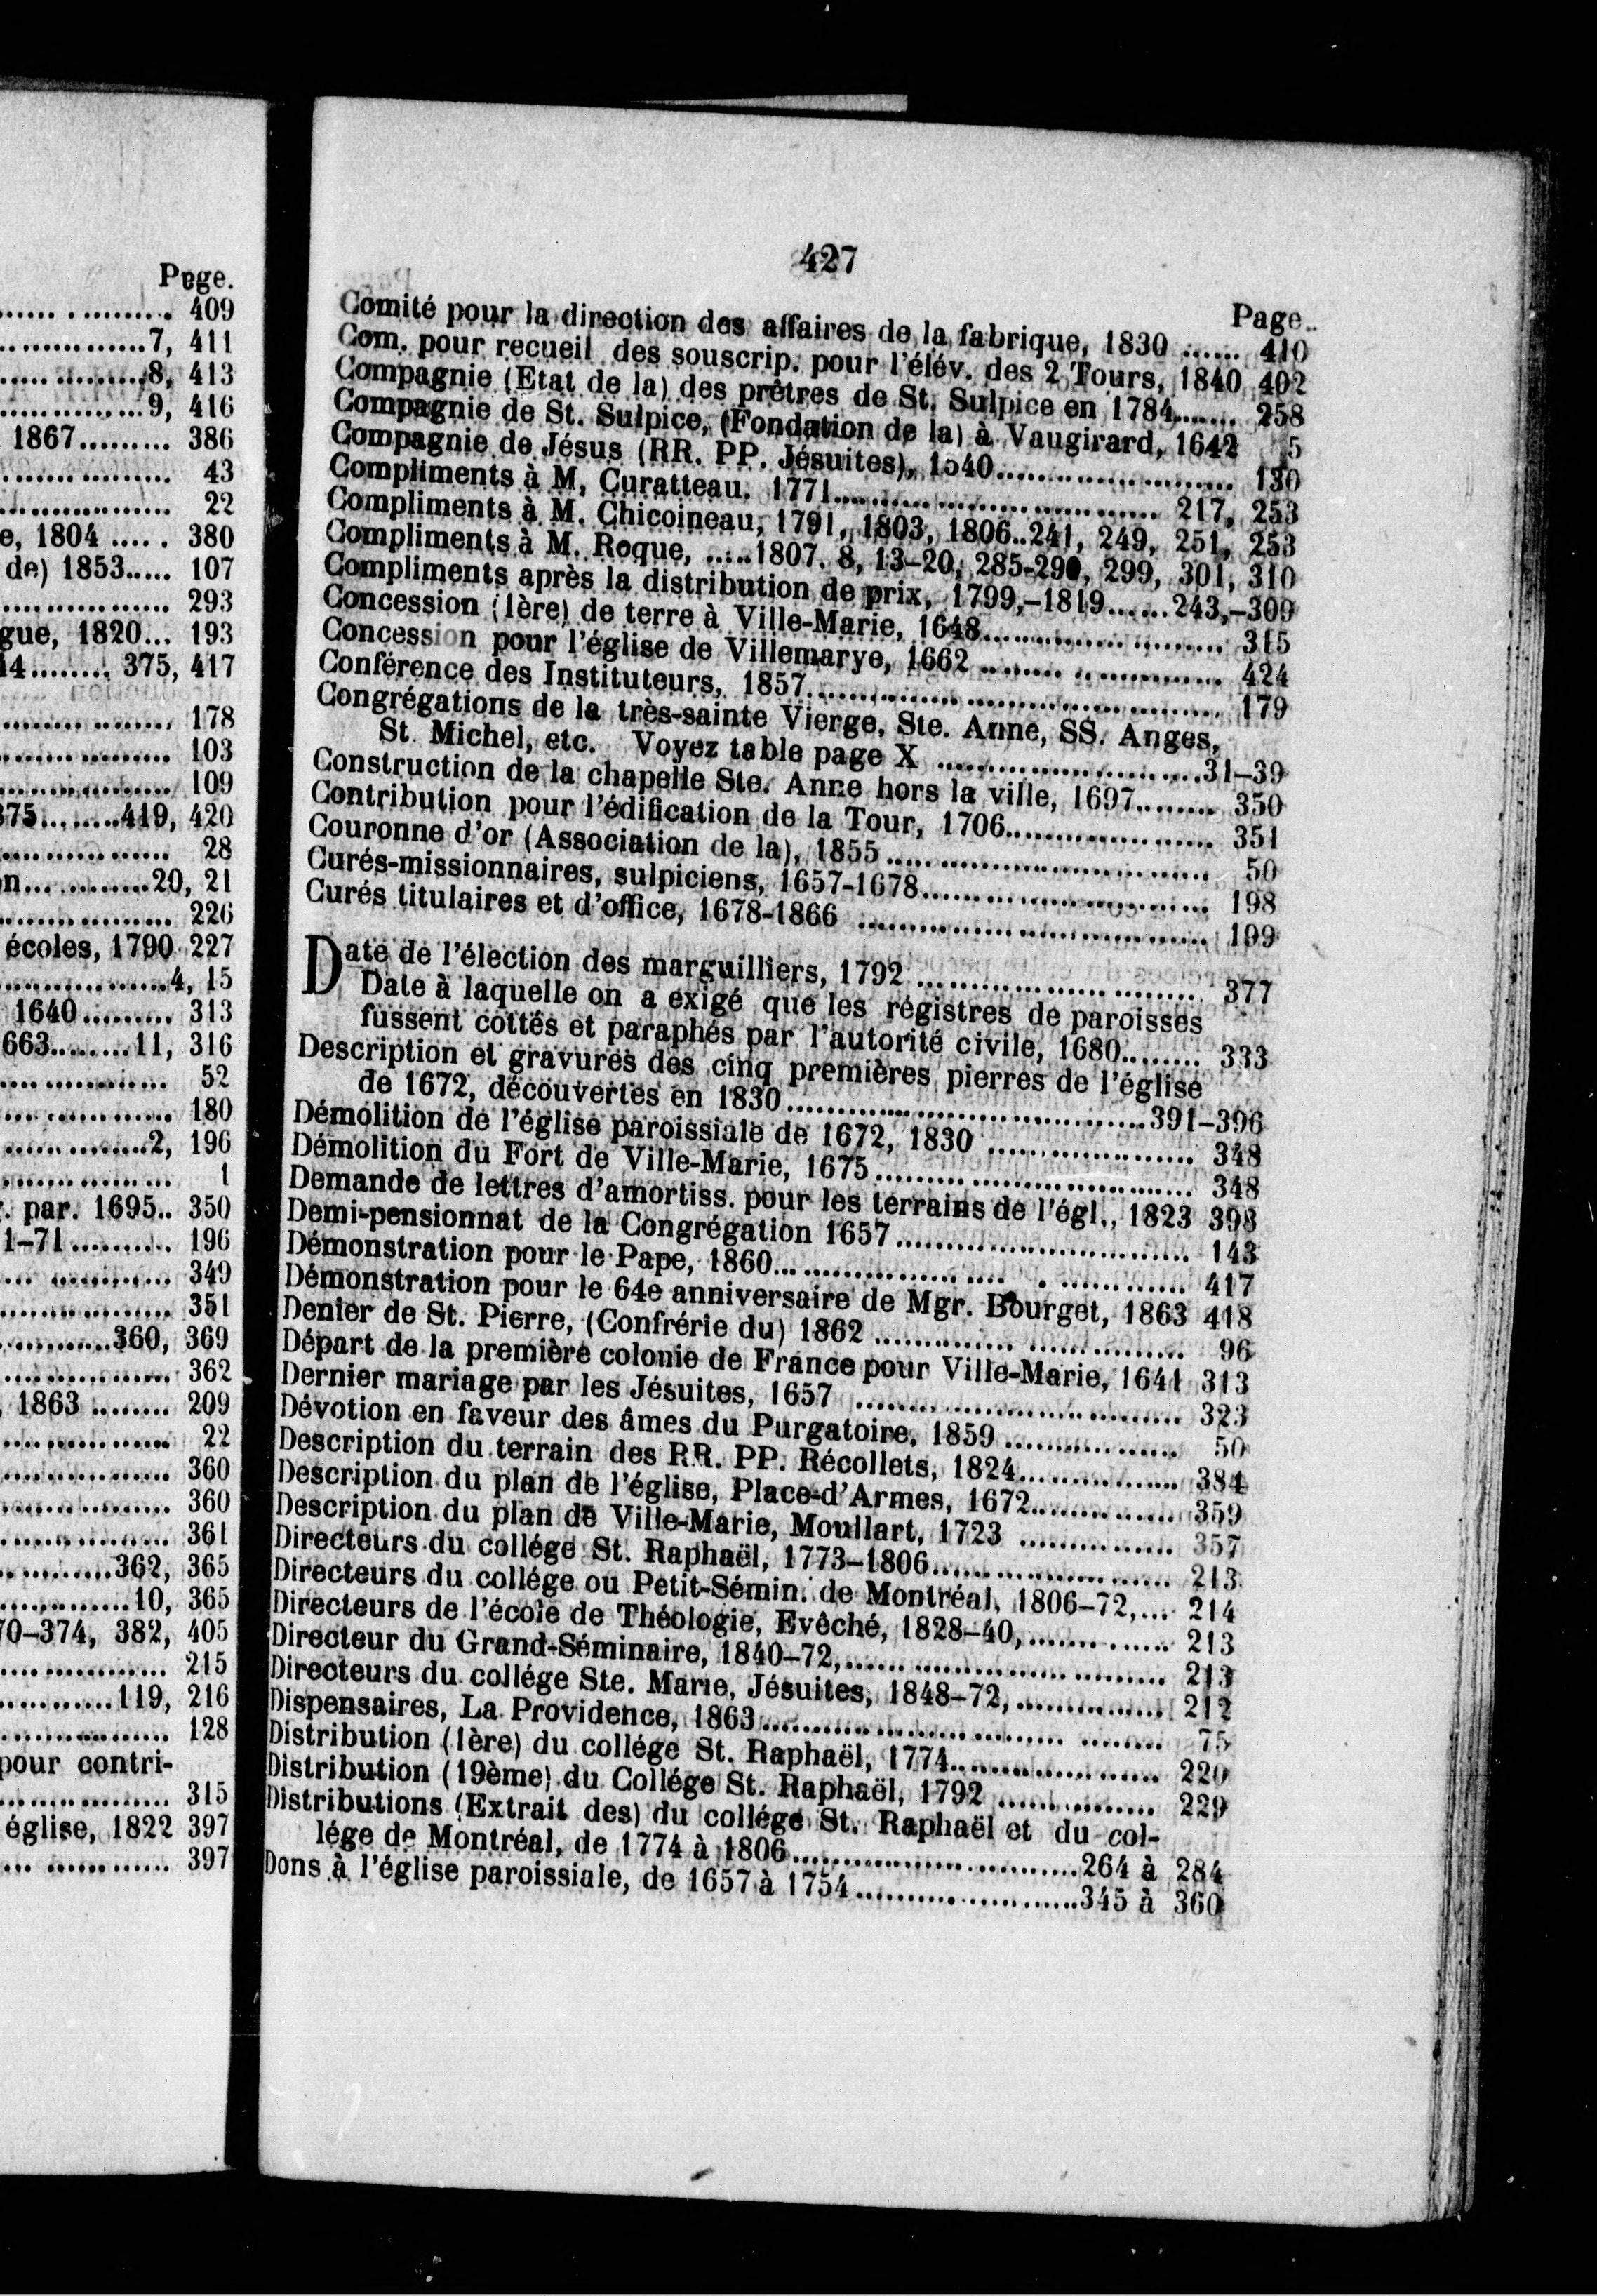 Page.
............... 409
...............7, 411
...............8, 413
...............9, 416
1867......... 386
............... 43
............... 22
e, 1804 ..... 380
de) 1853..... 107
............... 293
gue, 1820... 193
14......... 375, 417
............... 178
............... 103
............... 109
375.........419, 420
............... 28
n............20, 21
............... 226
écoles, 1790 227
...............4, 15
1640......... 313
663.........11, 316
............... 52
............... 180
...............2, 196
............... 1
. par. 1695.. 350
1-71.......... 196
............... 349
............... 351
............360, 369
............... 362
, 1863 ......... 209
............... 22
............... 360
............... 360
............... 361
............362, 365
.............10, 365
70-374, 382, 405
............... 215
............119, 216
............... 128
pour contri-
............... 315
église, 1822 397
............... 397
427
Page..
Comité pour la direction des affaires de la fabrique, 1830 ...... 410
Com. pour recueil des souscrip. pour l'élév. des 2 Tours, 1840 402
Compagnie (Etat de la) des prêtres de St. Sulpice en 1784....... 258
Compagnie de St. Sulpice, (Fondation de la) à Vaugirard, 1642 5
Compagnie de Jésus (RR. PP. Jésuites), 1540........................ 130
Compliments à M, Curatteau. 1771................................. 217, 253
Compliments à M. Chicoineau, 1791, 1803, 1806..241, 249, 251, 253
Compliments à M. Roque, .....1807. 8, 13-20, 285-290, 299, 301, 310
Compliments après la distribution de prix, 1799,-1819......243,-309
Concession (1ère) de terre à Ville-Marie, 1648........................ 315
Concession pour l'église de Villemarye, 1662 ........................ 424
Conférence des Instituteurs, 1857........................................ 179
Congrégations de la très-sainte Vierge, Ste. Anne, SS. Anges,
St. Michel, etc. Voyez table page X ...........................31-39
Construction de la chapelle Ste. Anne hors la ville, 1697........ 350
Contribution pour l'édification de la Tour, 1706..................... 351
Couronne d'or (Association de la), 1855 ................................. 50
Curés-missionnaires, sulpiciens, 1657-1678............................. 198
Curés titulaires et d'office, 1678-1866 ................................... 199
Date de l'élection des marguilliers, 1792 ............................. 377
Date à laquelle on a exigé que les régistres de paroisses
fussent cottés et paraphés par l'autorité civile, 1680........ 333
Description et gravures des cinq premières pierres de l'église
de 1672, découvertes en 1830.....................................391-396
Démolition de l'église paroissiale de 1672, 1830 ..................... 348
Démolition du Fort de Ville-Marie, 1675................................. 348
Demande de lettres d'amortiss. pour les terrains de l'égl., 1823 398
Demi-pensionnat de la Congrégation 1657............................. 143
Démonstration pour le Pape, 1860........................................ 417
Démonstration pour le 64e anniversaire de Mgr. Bourget, 1863 418
Denier de St. Pierre, (Confrérie du) 1862 ............................... 96
Départ de la première colonie de France pour Ville-Marie, 1641 313
Dernier mariage par les Jésuites, 1657 ................................. 323
Dévotion en faveur des âmes du Purgatoire, 1859 .................. 50
Description du terrain des RR. PP. Récollets, 1824................ 384
Description du plan de l'église, Place-d'Armes, 1672.............. 359
Description du plan de Ville-Marie, Moullart, 1723 ............... 357
Directeurs du collége St. Raphaël, 1773-1806........................ 213
Directeurs du collége ou Petit-Sémin. de Montréal, 1806-72,... 214
Directeurs de l'école de Théologie, Evêché, 1828-40,.............. 213
Directeur du Grand-Séminaire, 1840-72,................................. 213
Directeurs du collége Ste. Marie, Jésuites, 1848-72,............... 212
Dispensaires, La Providence, 1863........................................ 75
Distribution (1ère) du collége St. Raphaël, 1774..................... 220
Distribution (19ème) du Collége St. Raphaël, 1792 ................ 229
Distributions (Extrait des) du collége St. Raphaël et du col-
lége de Montréal, de 1774 à 1806.............................264 à 284
Dons à l'église paroissiale, de 1657 à 1754.......................345 à 360